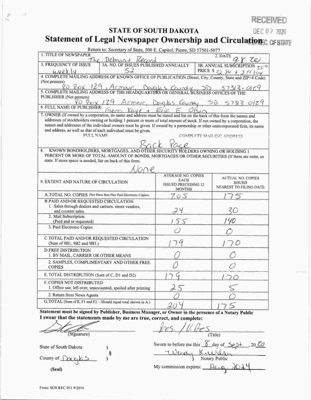 RECEIVED
DEC 07 2020
STATE OF SOUTH DAKOTA
Statement of Legal Newspaper Ownership and Circulation
SEC OF STATE
Return to: Secretary of State, 500 E. Capitol, Pierre, SD 57501-5077
1. TITLE OF NEWSPAPER
The Delmont Record
2. DATE
3. FREQUENCY OF ISSUE
weekly
3A. NO OF ISSUES PUBLISHED ANNUALLY
52
3B. ANNUAL SUBSCRIPTION
PRICE $
4. COMPLETE MAILING ADDRESS OF KNOWN OFFICE OF PUBLICATION (Street, City, County, State and ZIP+4 Code)
(Not printers)
PO Box 129, Armour, Douglas County, SD
5. COMPLETE MAILING ADDRESS OF THE HEADQUARTERS OR GENERAL BUSINESS OFFICES OF THE
PUBLISHER (Not printers)
PO Box 129 Armour, Douglas County, SD
6. FULL NAME OF PUBLISHER:
7. OWNER (If owned by a corporation, its name and address must be stated and list on the back of this form the names and
addresses of stockholders owning or holding 1 percent or more of total amount of stock. If not owned by a corporation, the
names and addresses of the individual owners must be given. If owned by a partnership or other unincorporated firm, its name
and address, as well as that of each individual must be given.
FULL NAME
COMPLETE MAILING ADDRESS
Back Page
8. KNOWN BONDHOLDERS, MORTGAGEES, AND OTHER SECURITY HOLDERS OWNING OR HOLDING 1
PERCENT OR MORE OF TOTAL AMOUNT OF BONDS, MORTGAGES OR OTHER SECURITIES (If there are none, so
state. If more space is needed, list on back of this form.
None
9. EXTENT AND NATURE OF CIRCULATION
AVERAGE NO. COPIES
EACH
ISSUED PRECEDING 12
MONTHS
ACTUAL NO. COPIES
ISSUED
NEAREST TO FILING DATE
A. TOTAL NO. COPIES
205
175
B. PAID AND/OR REQUESTED CIRCULATION
1. Sales through dealers and carriers, street vendors,
and counter sales.
24
30
2. Mail Subscription
(Paid and or requested)
155
140
3. Paid Electronic Copies
0
0
C. TOTAL PAID AND/OR REQUESTED CIRCULATION
(Sum of 9B1, 9B2 and 9B3.)
179
170
D. FREE DISTRIBUTION
1. BY MAIL, CARRIER OR OTHER MEANS
0
0
2. SAMPLES, COMPLIMENTARY AND OTHER FREE
COPIES
0
0
E. TOTAL DISTRIBUTION (Sum of C, D1 and D2)
179
170
F. COPIES NOT DISTRIBUTED
1. Office use, left over, unaccounted, spoiled after printing
25
5
2. Return from News Agents
0
0
G. TOTAL (Sum of E, F1 and F2 - Should equal total shown in A.)
204
175
Statement must be signed by Publisher, Business Manager, or Owner in the presence of a Notary Public
I swear that the statements made by me are true, correct, and complete:
(Signature)
(Title)
State of South Dakota )
§
County of Douglas )
(Seal)
Sworn to before me this 8 day of Sept. 2020
Notary Public
My commission expires:
Form: SOS REC 051 9/2016